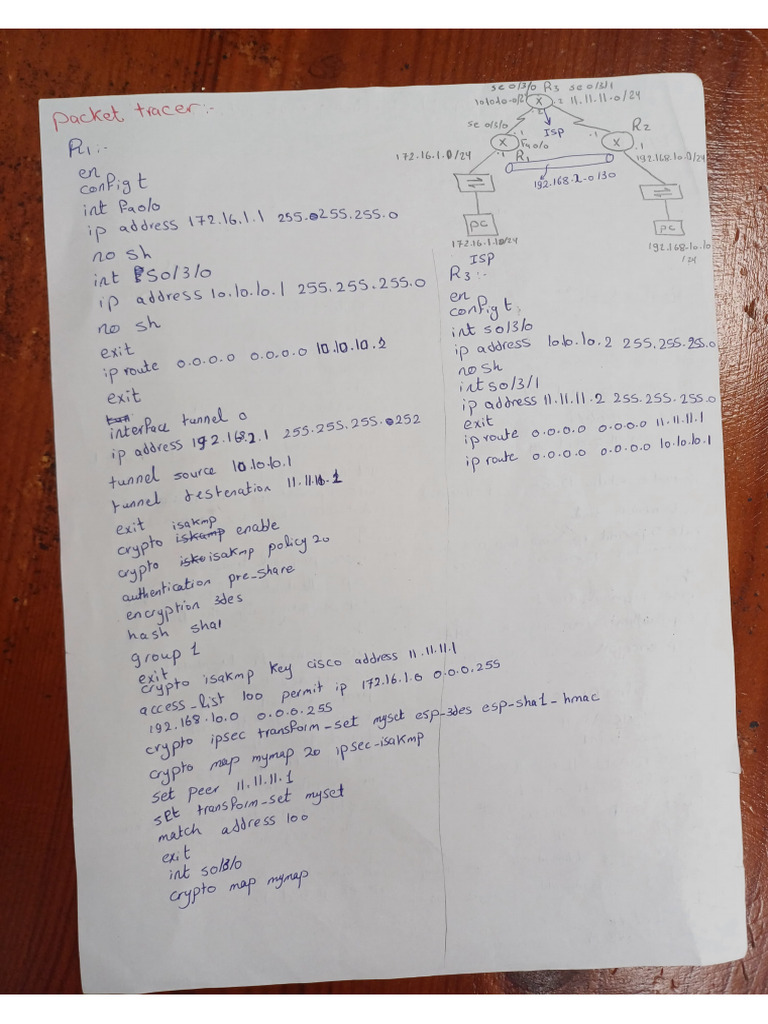 packet tracer:-
R1:-
en
config t
int fa0/0
ip address 172.16.1.1 255.255.255.0
no sh
int S0/3/0
ip address 10.10.10.1 255.255.255.0
no sh
exit
ip route 0.0.0.0 0.0.0.0 10.10.10.2
exit
interface tunnel 0
ip address 192.168.2.1 255.255.255.252
tunnel source 10.10.10.1
tunnel destenation 11.11.11.1
exit
crypto isakmp enable
crypto isakmp policy 20
authentication pre-share
encryption 3des
hash sha1
group 1
exit
crypto isakmp key cisco address 11.11.11.1
access-list 100 permit ip 172.16.1.0 0.0.0.255
192.168.10.0 0.0.0.255
crypto ipsec transform-set myset esp-3des esp-sha1-hmac
crypto map mymap 20 ipsec-isakmp
set peer 11.11.11.1
set transform-set myset
match address 100
exit
int s0/3/0
crypto map mymap
se 0/3/0 R3 se 0/3/1
.2 11.11.11.0/24
X
.2
ISP
se 0/3/0
.1
X
Fa0/0
.1
R1
.1
X
R2
.1
172.16.1.0/24
192.168.10.0/24
192.168.2.0/30
PC
PC
172.16.1.10/24
192.168.10.10
/24
ISP
R3:-
en
config t
int s0/3/0
ip address 10.10.10.2 255.255.255.0
no sh
int s0/3/1
ip address 11.11.11.2 255.255.255.0
exit
ip route 0.0.0.0 0.0.0.0 11.11.11.1
ip route 0.0.0.0 0.0.0.0 10.10.10.1